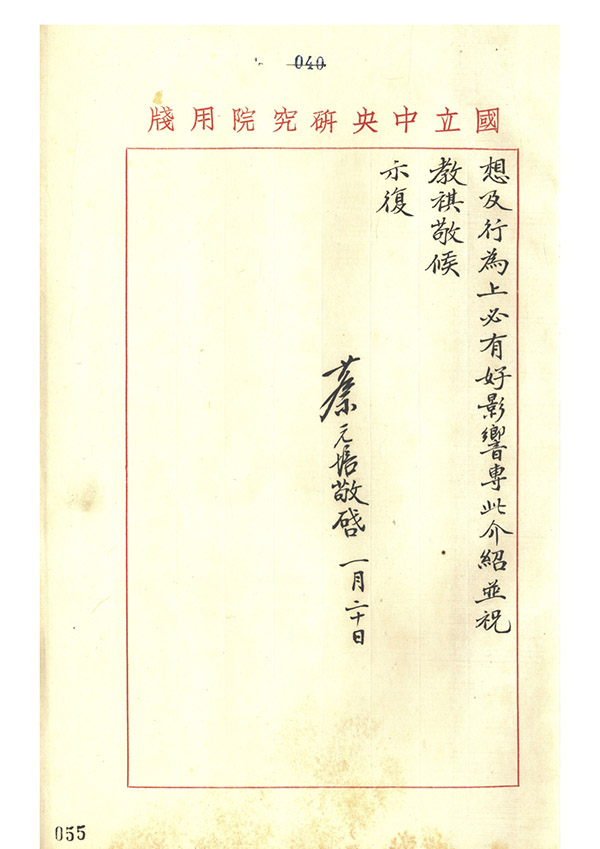 040
國立中央研究院用牋
想及行為上必有好影響專此介紹並祝
教祺敬候
示復
蔡元培敬啓 一月二十日
055